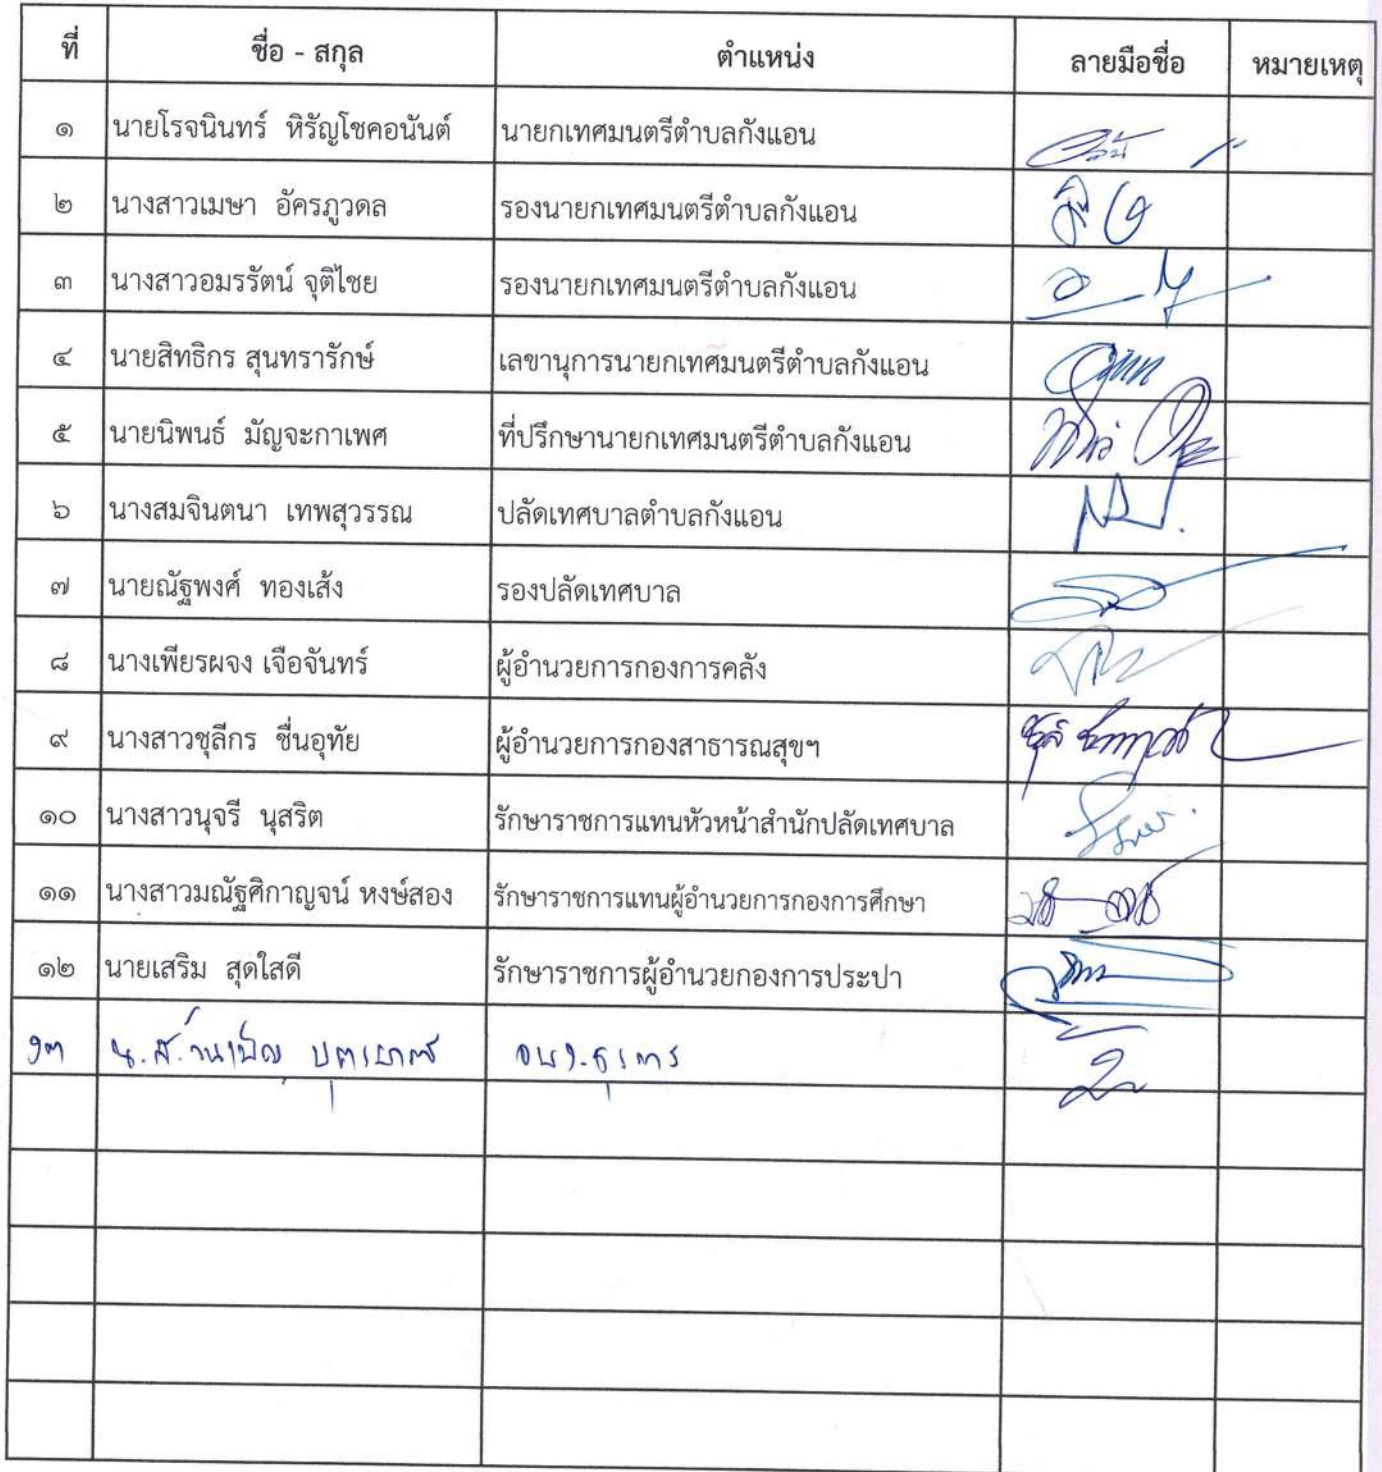 ที่ ชื่อ - สกุล ตำแหน่ง ลายมือชื่อ หมายเหตุ
๑ นายโรจนินทร์ หิรัญโชคอนันต์ นายกเทศมนตรีตำบลกังแอน
๒ นางสาวเมษา อัครภูวดล รองนายกเทศมนตรีตำบลกังแอน
๓ นางสาวอมรรัตน์ จุติไชย รองนายกเทศมนตรีตำบลกังแอน
๔ นายสิทธิกร สุนทรารักษ์ เลขานุการนายกเทศมนตรีตำบลกังแอน
๕ นายนิพนธ์ มัญจะกาเพศ ที่ปรึกษานายกเทศมนตรีตำบลกังแอน
๖ นางสมจินตนา เทพสุวรรณ ปลัดเทศบาลตำบลกังแอน
๗ นายณัฐพงศ์ ทองเส้ง รองปลัดเทศบาล
๘ นางเพียรผจง เจือจันทร์ ผู้อำนวยการกองการคลัง
๙ นางสาวชุลีกร ชื่นอุทัย ผู้อำนวยการกองสาธารณสุขฯ
๑๐ นางสาวนุจรี นุสริต รักษาราชการแทนหัวหน้าสำนักปลัดเทศบาล
๑๑ นางสาวมณัฐศิกาญจน์ หงษ์สอง รักษาราชการแทนผู้อำนวยการกองการศึกษา
๑๒ นายเสริม สุดใสดี รักษาราชการผู้อำนวยกองการประปา
๑๓ น.ส. จนง.ธุรการ